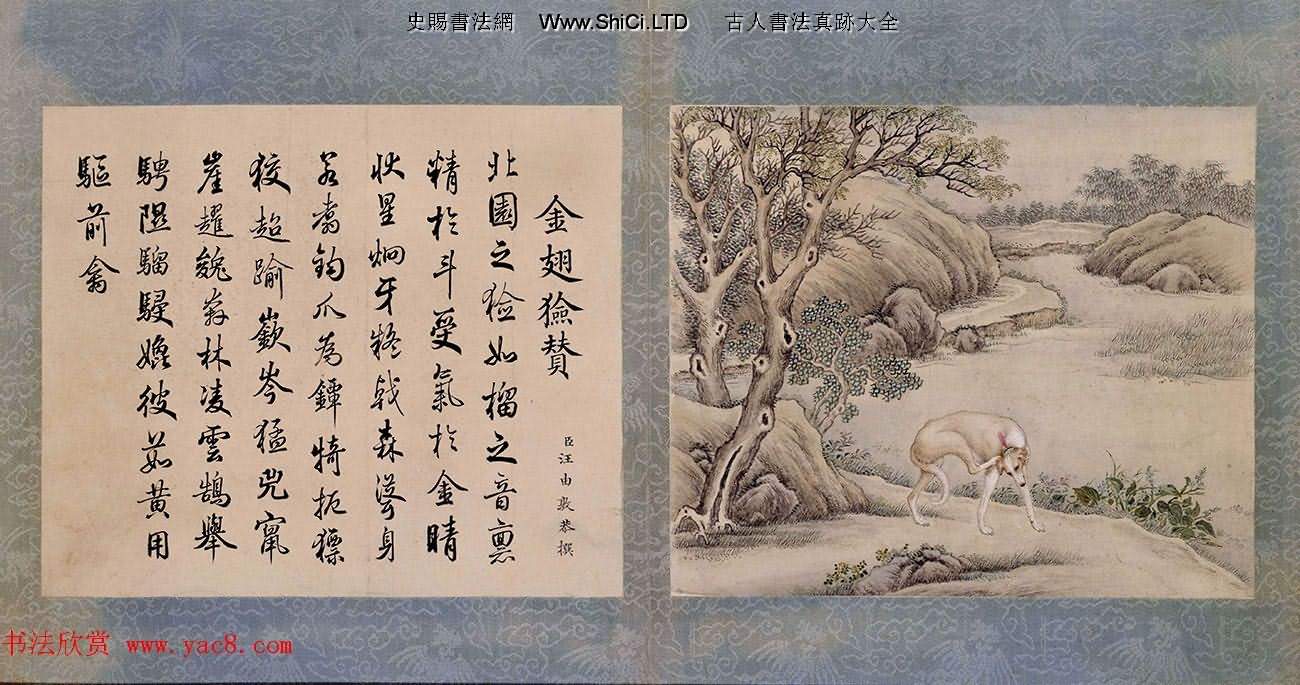 史賜書法網 Www.ShiCi.LTD 古人書法真跡大全
金翅獫贊
臣汪由敦恭撰
北園之獫如榴之音稟
精於斗受氣於金睛
狀星炯牙戟森聳身
若鶱鈎爪為鐔犄扼
狡超踰嶔岑猛兕竄
崖趯林凌雲鵠舉
騁隰騮駸彼茹黃用
驅前禽
书法欣赏 www.yac8.com